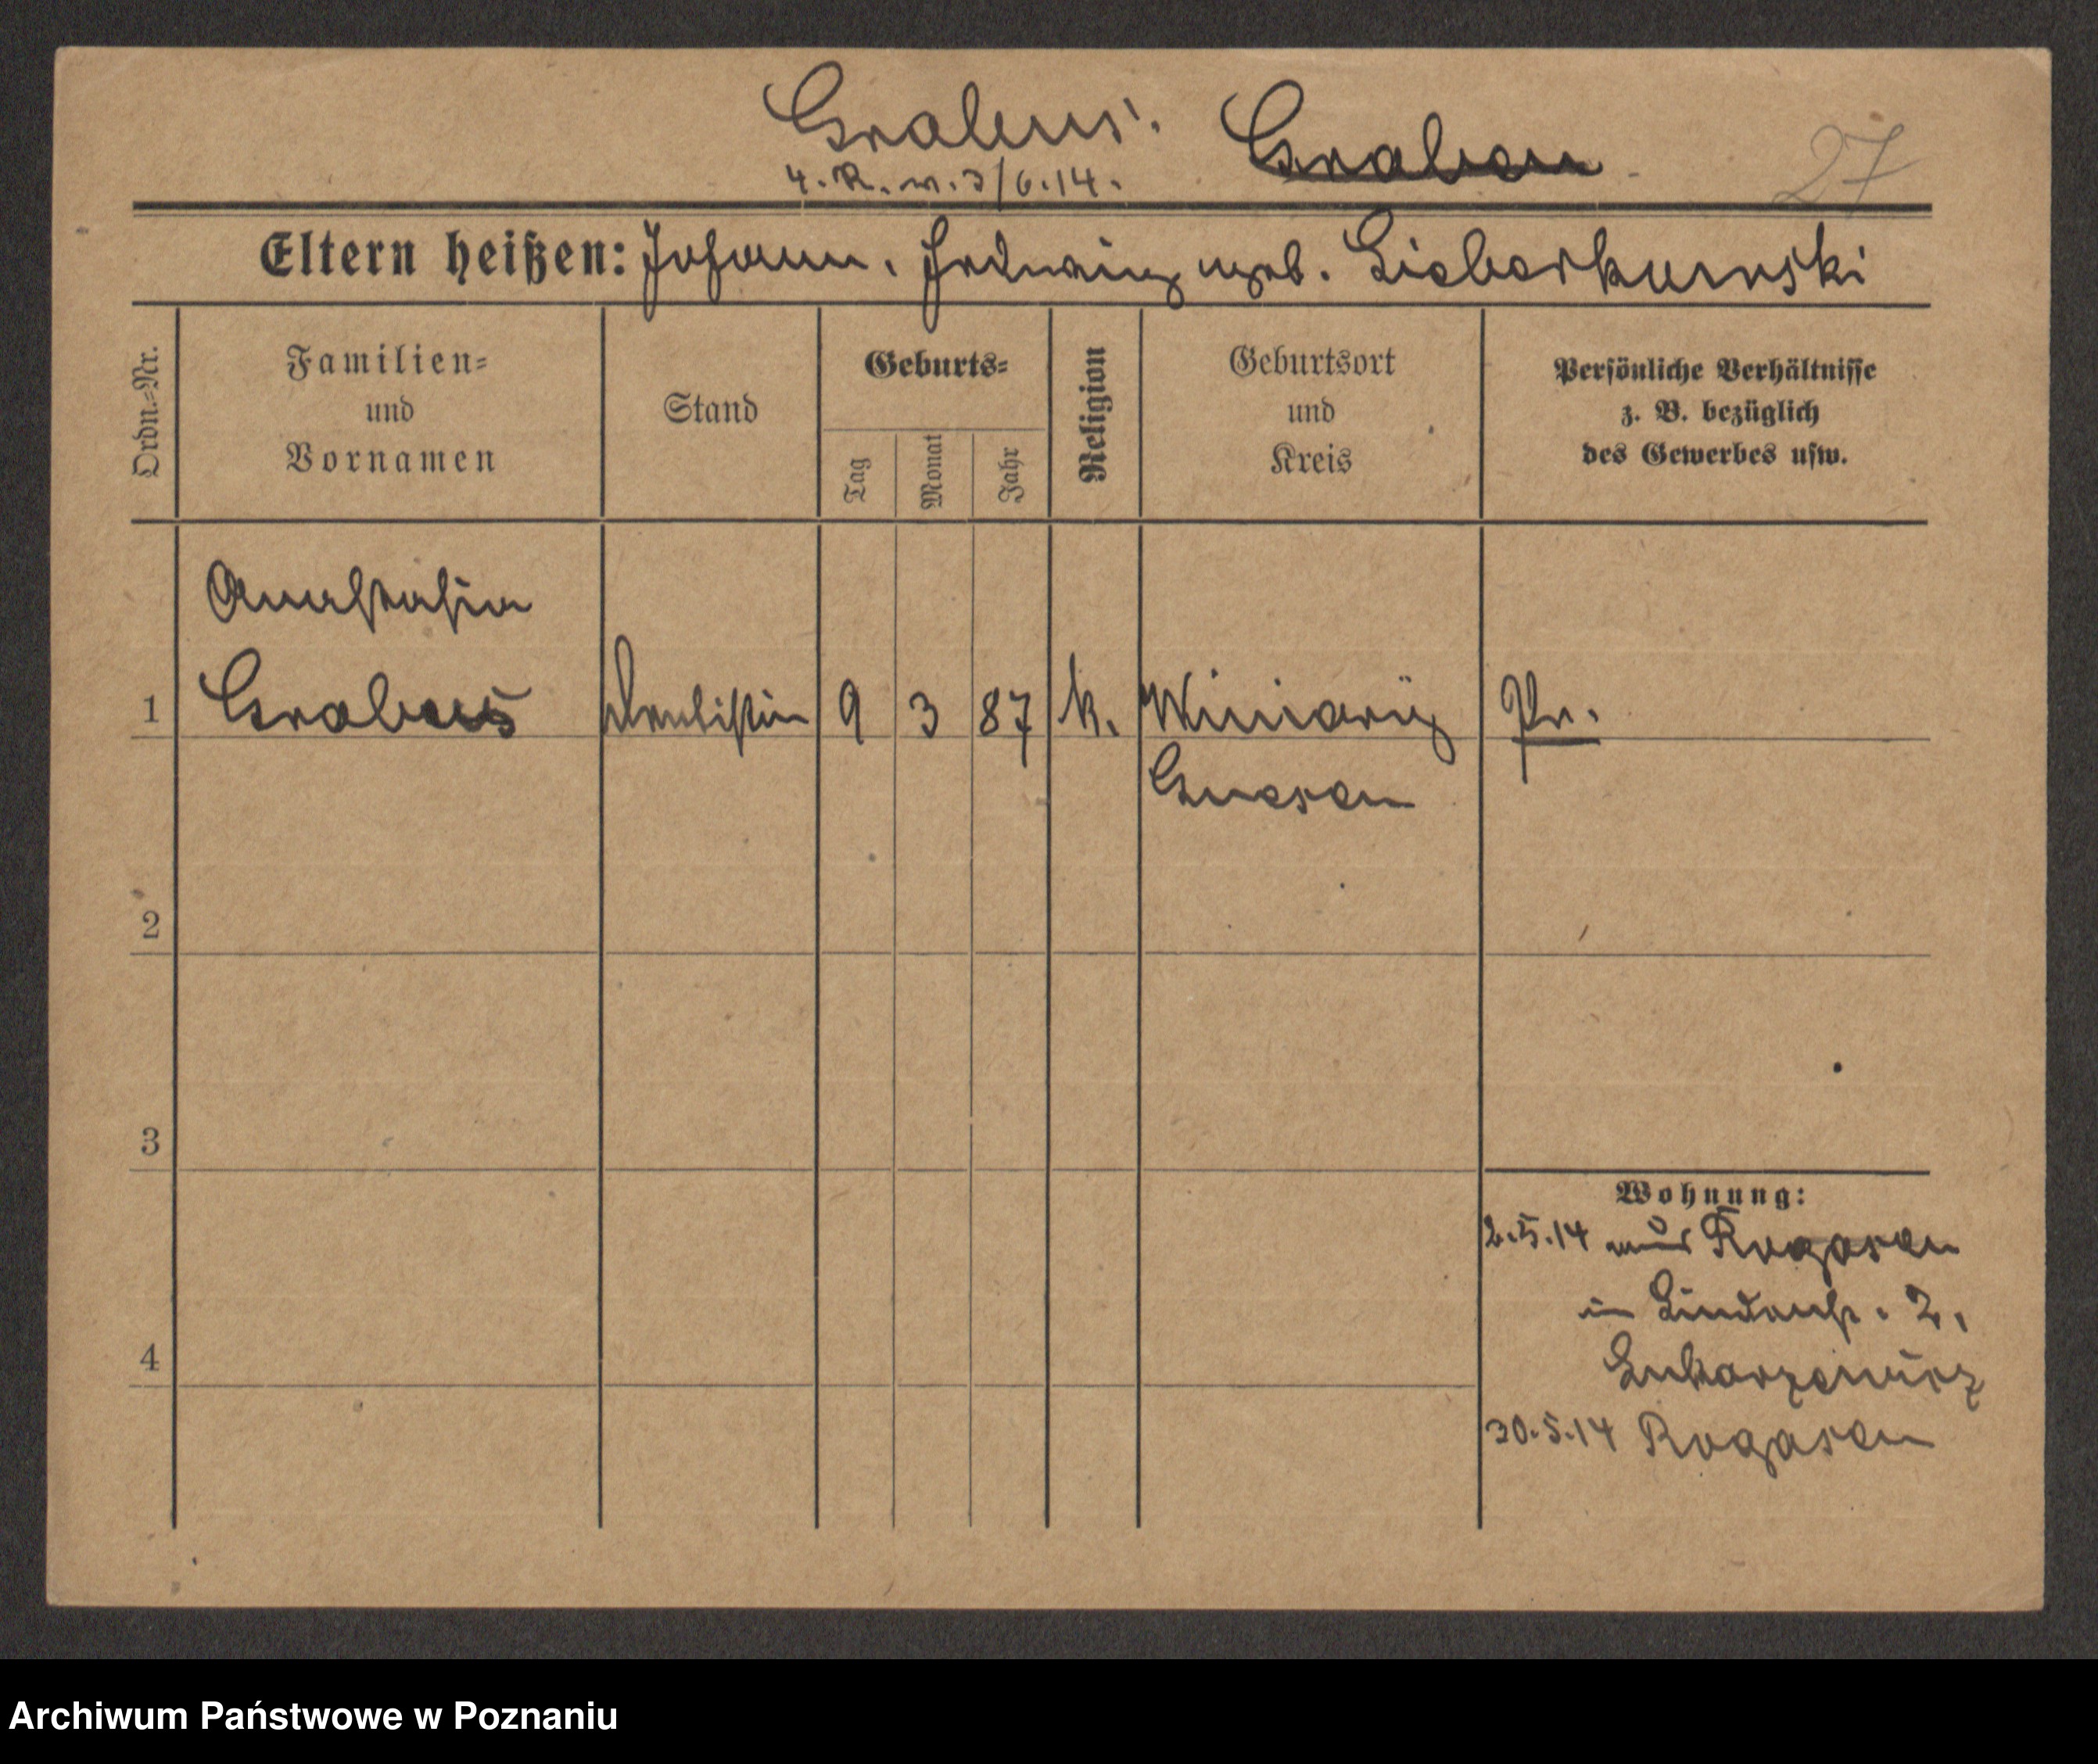 Grabus.
Graben
27
4. R. v. 3/6.14.
Eltern heißen: Johann, Hedwig geb. Lieberkurski
Ordn.=Nr.
Familien=
und
Vornamen
Stand
Geburts=
Tag
Monat
Jahr
Religion
Geburtsort
und
Kreis
Persönliche Verhältnisse
z. B. bezüglich
des Gewerbes usw.
Anastasia
1 Grabus 9 3 87 k. Winiary Pr.
Gnesen
2
3
4
Wohnung:
2.5.14 aus Rogasen
in Lindenstr. 2,
30.5.14 Rogasen
Archiwum Państwowe w Poznaniu